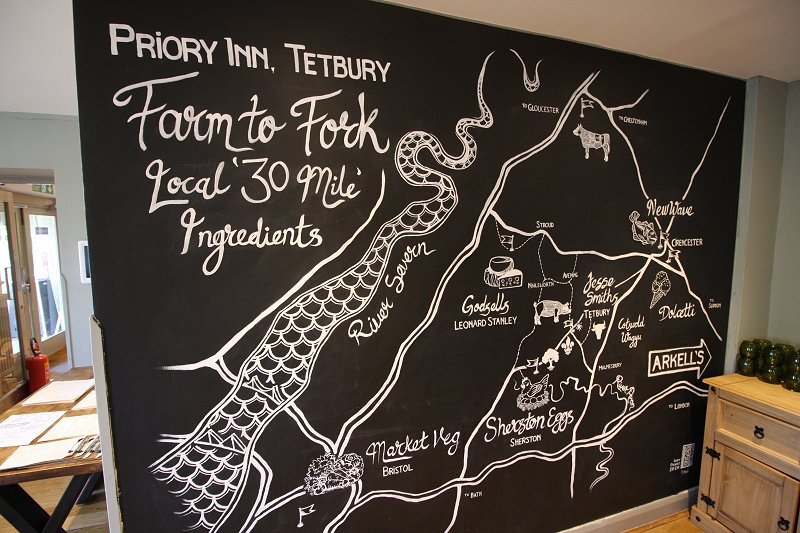 PRIORY INN, TETBURY
Farm to Fork
Local '30 Mile'
Ingredients
TO GLOUCESTER
TO CHELTENHAM
New Wave
CIRENCESTER
STROUD
River Severn
Godsells
LEONARD STANLEY
NAILSWORTH
AVENING
Jesse
Smiths
TETBURY
Dolcetti
TO SWINDON
Cotswold
Wagyu
ARKELL'S
MALMESBURY
TO LONDON
Sherston Eggs
SHERSTON
Market Veg
BRISTOL
TO BATH